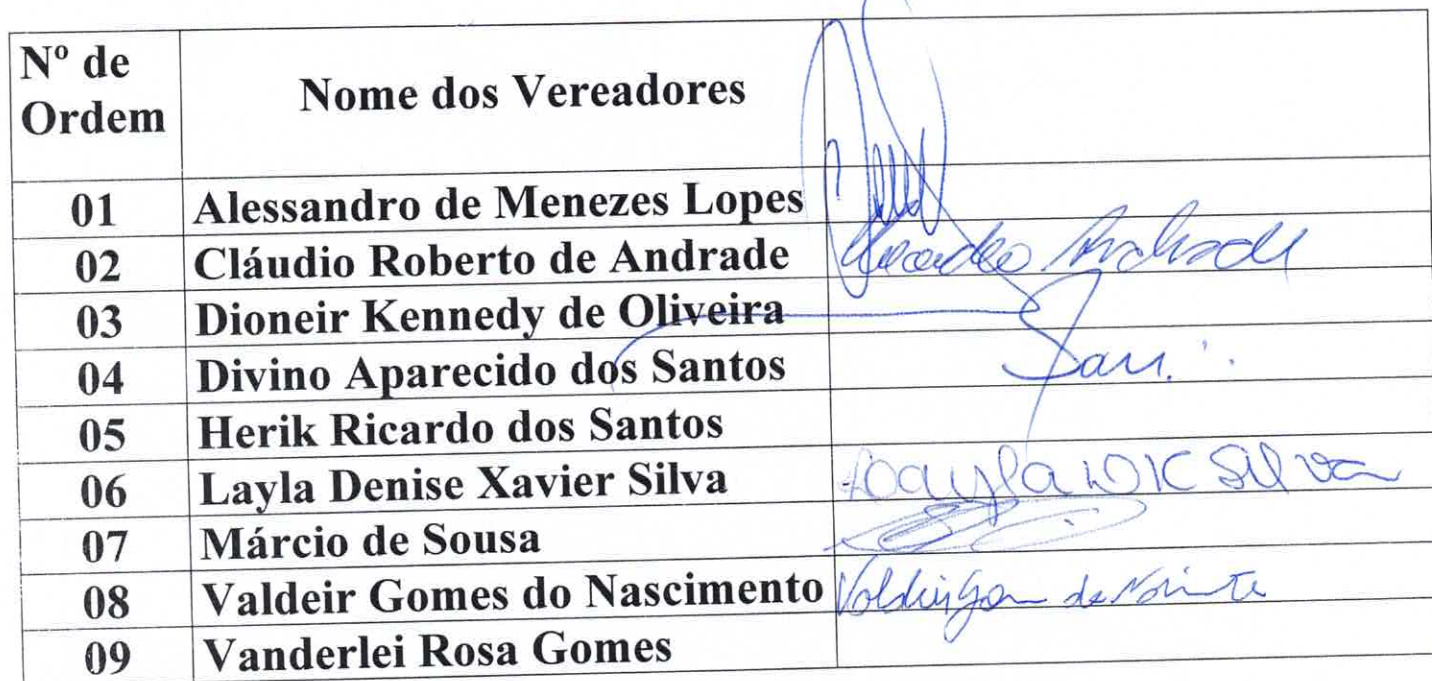 Nº de
Ordem
Nome dos Vereadores
01 Alessandro de Menezes Lopes
02 Cláudio Roberto de Andrade Andrade
03 Dioneir Kennedy de Oliveira
04 Divino Aparecido dos Santos
05 Herik Ricardo dos Santos
06 Layla Denise Xavier Silva Layla DX Silva
07 Márcio de Sousa
08 Valdeir Gomes do Nascimento
09 Vanderlei Rosa Gomes